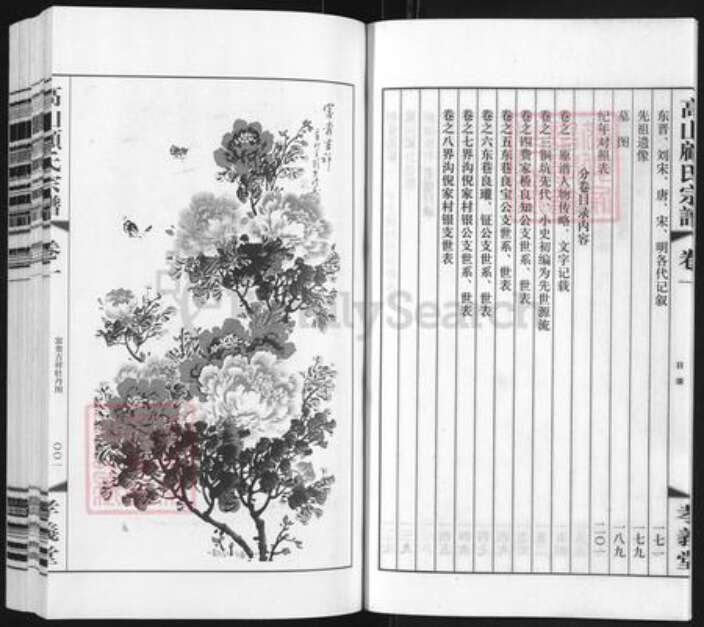 高山顾氏宗谱 卷一
目录
孝義堂
东晋、刘宋、唐、宋、明各代记叙 一七一
先祖遗像 一七九
墓图 一八九
纪年对照表 二〇一
分卷目录内容
卷之一 原谱人物传略、文字记载
卷之三铜坑先代、小史初编为先世源流
卷之四费家桥良知公支世系、世表
卷之五东巷良宝公支世系、世表
卷之六东巷良瓛、钲公支世系、世表
卷之七界沟倪家村银公支世系、世表
卷之八界沟倪家村银支世表
富贵吉祥
高山顾氏宗谱 卷一
富贵吉祥牡丹图
〇〇一
孝義堂
FamilySearch